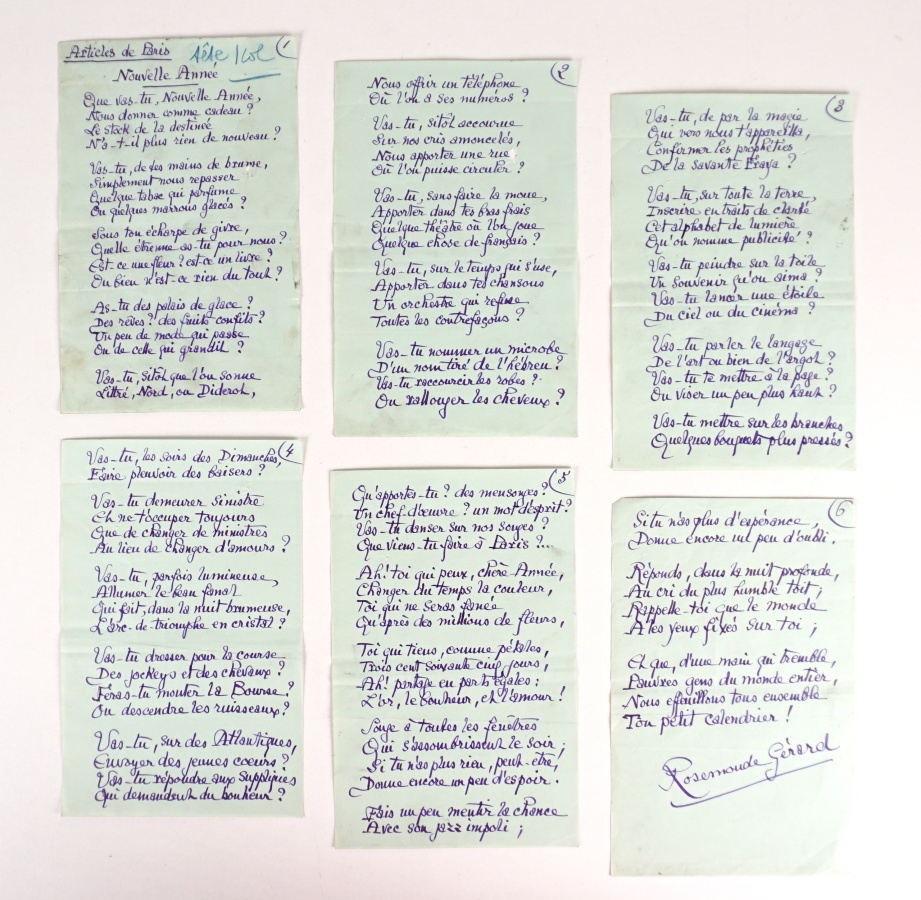 Articles de Paris
tête / col
1
Nouvelle Année
Que vas-tu, Nouvelle Année,
Nous donner comme cadeau ?
Le stock de la destinée
N'a-t-il plus rien de nouveau ?
Vas-tu, de tes mains de brume,
Simplement nous repasser
Quelque tabac qui parfume
Ou quelques marrons glacés ?
Sous ton écharpe de givre,
Quelle étrenne as-tu pour nous ?
Est-ce une fleur ? est-ce un livre ?
Ou bien n'est-ce rien du tout ?
As-tu des palais de glace ?
Des rêves ? des fruits confits ?
Un peu de mode qui passe
Ou de celle qui grandit ?
Vas-tu, sitôt que l'on sonne
Littré, Nord, ou Diderot,
2
Nous offrir un téléphone
Où l'on a ses numéros ?
Vas-tu, sitôt accourue
Sur nos cris amoncelés,
Nous apporter une rue
Où l'on puisse circuler ?
Vas-tu, sans faire la moue,
Apporter dans tes bras frais
Quelque théâtre où l'on joue
Quelque chose de français ?
Vas-tu, sur le temps qui s'use,
Apporter dans tes chansons
Un orchestre qui refuse
Toutes les contrefaçons ?
Vas-tu nommer un microbe
D'un nom tiré de l'hébreu ?
Vas-tu raccourcir les robes ?
Ou rallonger les cheveux ?
3
Vas-tu, de par la magie
Qui vers nous t'appareilla,
Confirmer les prophéties
De la savante Fraya ?
Vas-tu, sur toute la terre,
Inscrire en traits de clarté
Cet alphabet de lumière
Qu'on nomme publicité ?
Vas-tu peindre sur la toile
Un souvenir qu'on aima ?
Vas-tu lancer une étoile
Du ciel ou du cinéma ?
Vas-tu parler le langage
De l'art ou bien de l'argot ?
Vas-tu te mettre à la page ?
Ou viser un peu plus haut ?
Vas-tu mettre sur les branches
Quelques bouquets plus pressés ?
4
Vas-tu, les soirs des Dimanches,
Faire pleuvoir des baisers ?
Vas-tu demeurer sinistre
Et ne t'occuper toujours
Que de changer de ministres
Au lieu de changer d'amours ?
Vas-tu, parfois lumineuse,
Allumer le beau fanal
Qui fait, dans la nuit brumeuse,
L'arc-de-triomphe en cristal ?
Vas-tu dresser pour la course
Des jockeys et des chevaux ?
Feras-tu monter la Bourse ?
Ou descendre les ruisseaux ?
Vas-tu, sur des Atlantiques,
Envoyer des jeunes coeurs ?
Vas-tu répondre aux suppliques
Qui demandent du bonheur ?
5
Qu'apportes-tu ? des mensonges ?
Un chef-d'œuvre ? un mot d'esprit ?
Vas-tu danser sur nos songes ?
Que viens-tu faire à Paris ?...
Ah! toi qui peux, chère Année,
Changer du temps la couleur,
Toi qui ne seras fanée
Qu'après des millions de fleurs,
Toi qui tiens, comme pétales,
Trois cent soixante cinq jours,
Ah! partage en parts égales :
L'or, le bonheur, et l'amour !
Songe à toutes les fenêtres
Qui s'assombrissent le soir ;
Si tu n'as plus rien, peut-être,
Donne encore un peu d'espoir.
Fais un peu mentir la chance
Avec son jazz impoli ;
6
Si tu n'as plus d'espérance,
Donne encore un peu d'oubli.
Réponds, dans la nuit profonde,
Au cri du plus humble toit ;
Rappelle-toi que le monde
A les yeux fixés sur toi ;
Et que, d'une main qui tremble,
Pauvres gens du monde entier,
Nous effeuillons tous ensemble
Ton petit calendrier !
Rosemonde Gérard